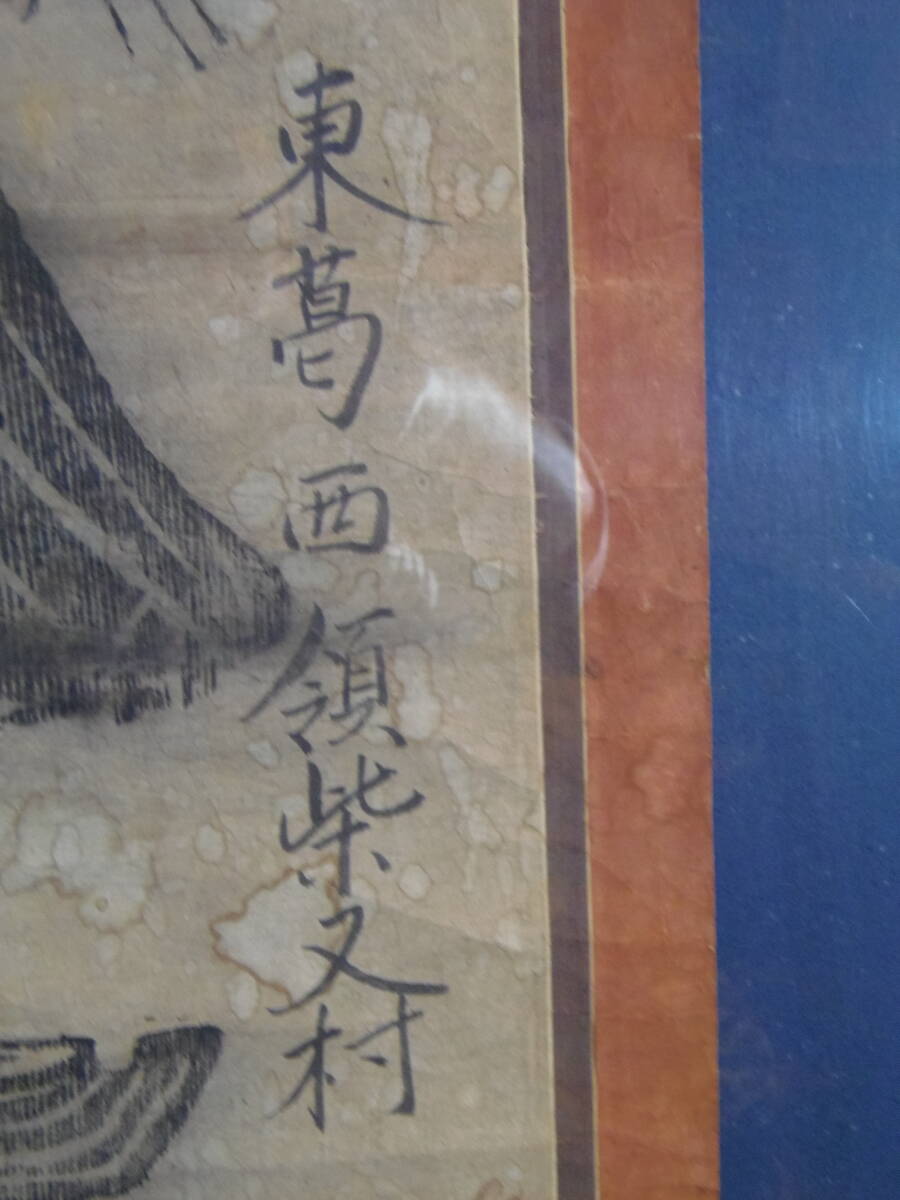 東葛西領柴又村